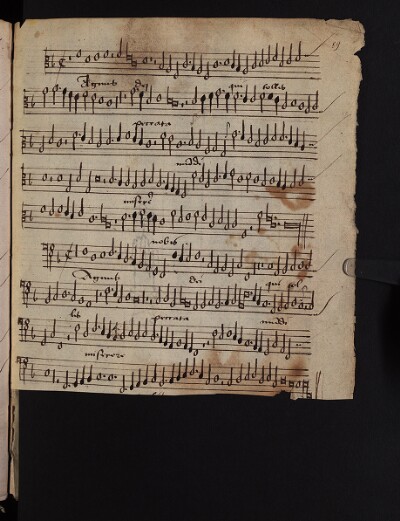 Agnus dei qui tollis
peccata
mūdi
misere
nobis
Agnus dei qui tol
lis peccata mūdi
miserere